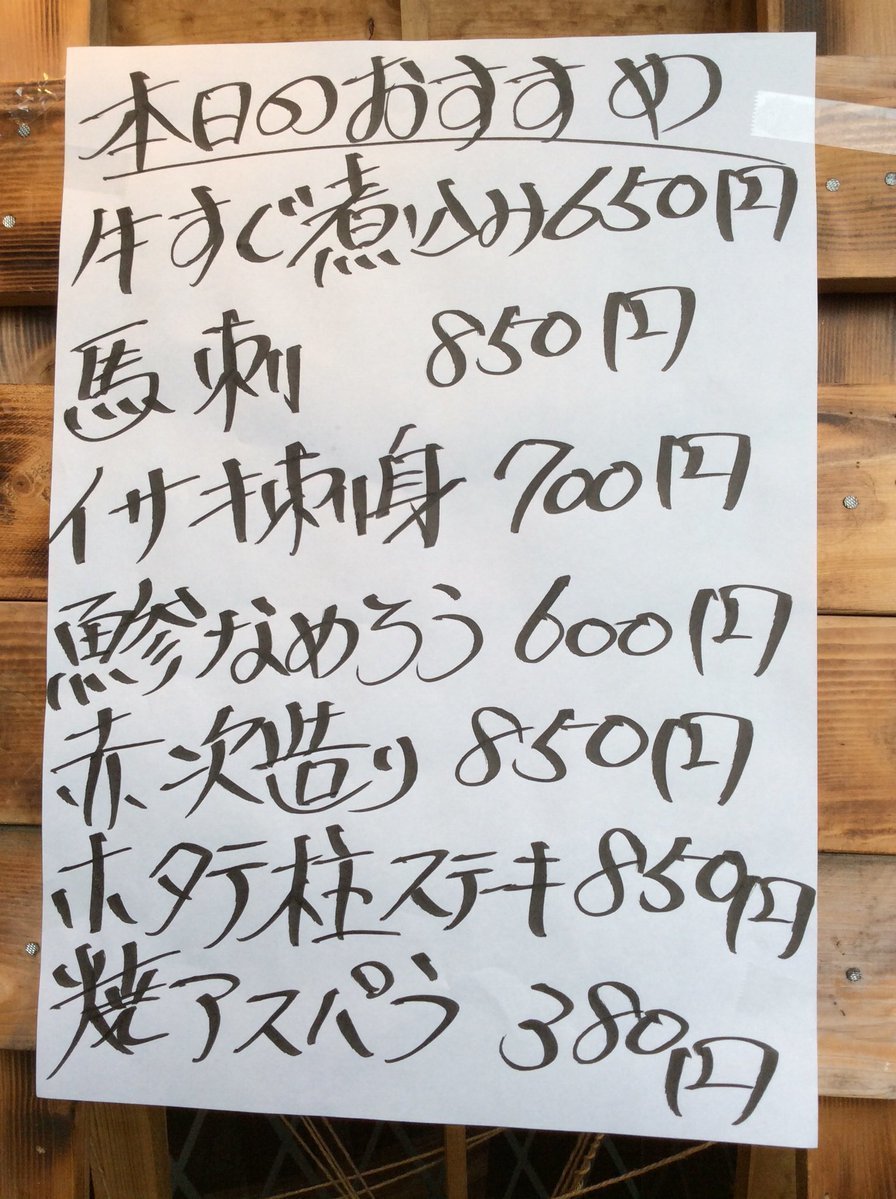 本日のおすすめ
牛すじ煮込み650円
馬刺 850円
イサキ刺身 700円
鯵なめろう 600円
赤次造り 850円
ホタテ柱ステキ850円
焼アスパラ 380円